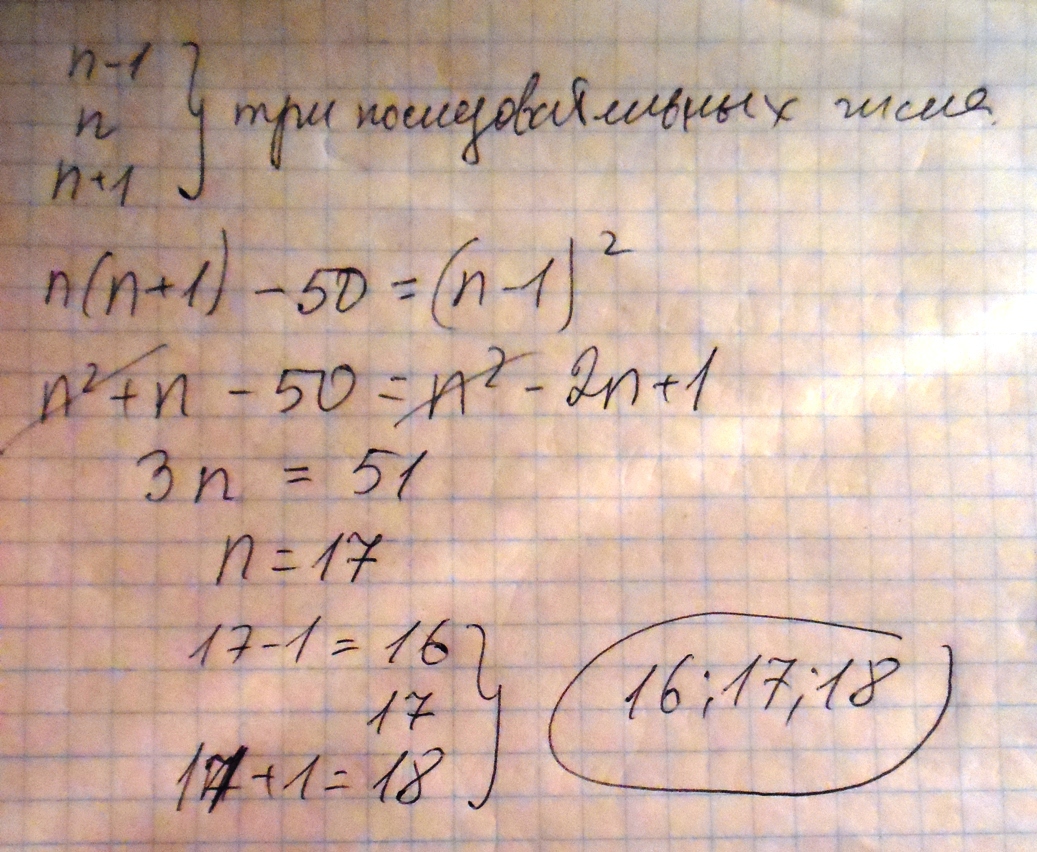 n-1
n } три последовательных числа.
n+1
n(n+1) - 50 = (n-1)²
n² + n - 50 = n² - 2n + 1
3n = 51
n = 17
17-1 = 16
17
17+1 = 18
16; 17; 18